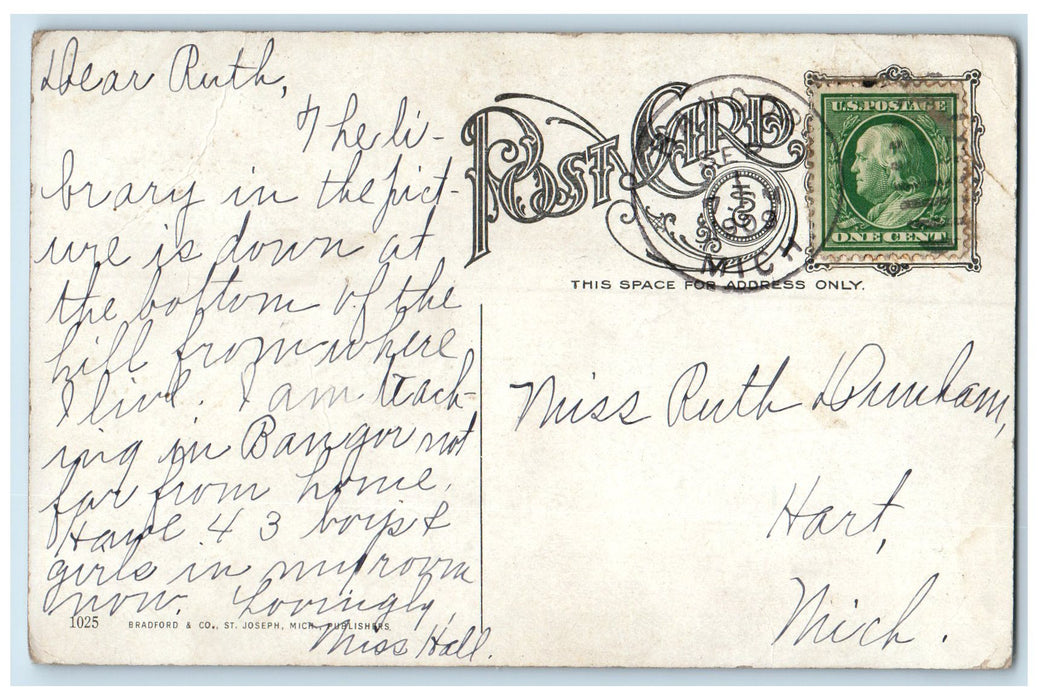 Dear Ruth,
The li-
brary in the pict-
ure is down at
the bottom of the
hill from where
I live. I am teach-
ing in Bangor not
far from home.
Have 43 boys &
girls in my room
now. Lovingly,
Miss Hall.
1025 BRADFORD & CO., ST. JOSEPH, MICH., PUBLISHERS
POST CARD
SE
1909
MICH
U.S. POSTAGE
ONE CENT
THIS SPACE FOR ADDRESS ONLY.
Miss Ruth Dunham,
Hart,
Mich.